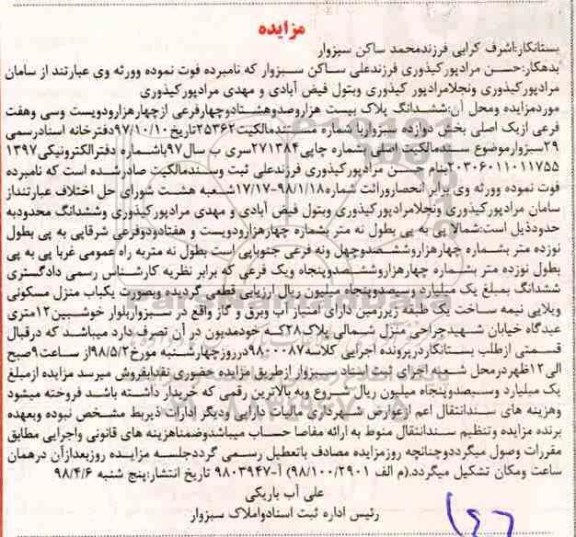 مزایده
بستانکار:اشرف گرایی فرزندمحمد ساکن سبزوار
بدهکار:حسن مرادپورکیذوری فرزندعلی ساکن سبزوار که نامبرده فوت نموده وورثه وی عبارتند از سامان
مرادپورکیذوری ونجلامرادپور کیذوری وبتول فیض آبادی و مهدی مرادپورکیذوری
موردمزایده ومحل آن:ششدانگ پلاک بیست هزاروصدوهشتادوچهارفرعی ازچهارهزارودویست وسی وهفت
فرعی ازیک اصلی بخش دوازده سبزوارباشماره مستندمالکیت۲۵۳۶۲تاریخ۹۷/۱۰/۱۰دفترخانه اسنادرسمی
۲۹سبزوارموضوع سندمالکیت اصلی بشماره چاپی۲۷۱۳۸۴سری ب سال۹۷باشماره دفترالکترونیکی۱۳۹۷
۲۰۳۰۶۰۱۱۰۱۱۷۵۵بنام حسن مرادپورکیذوری فرزندعلی ثبت وسندمالکیت صادرشده است که نامبرده
فوت نموده وورثه وی برابر انحصاروراثت شماره۹۸/۱/۱۸-۱۷/۱۷شعبه هشت شورای حل اختلاف عبارتنداز
سامان مرادپورکیذوری ونجلامرادپورکیذوری وبتول فیض آبادی و مهدی مرادپورکیذوری وششدانگ محدودبه
حدودذیل است:شمالا پی به پی بطول نه متر بشماره چهارهزارودویست و هفتادودوفرعی شرقاپی به پی بطول
نوزده متر بشماره چهارهزاروششصدوچهل ونه فرعی جنوباپی است بطول نه متربه راه عمومی غربا پی به پی
بطول نوزده متر بشماره چهارهزاروششصدوپنجاه ویک فرعی که برابر نظریه کارشناس رسمی دادگستری
ششدانگ بمبلغ یک میلیارد وسیصدوپنجاه میلیون ریال ارزیابی قطعی گردیده وبصورت یکباب منزل مسکونی
ویلایی نیمه ساخت یک طبقه زیرزمین دارای امتیاز آب وبرق و گاز واقع در سبزواربلوار خوشبین۱۲متری
عیدگاه خیابان شهیدچراجی منزل شمالی پلاک۲۸که خودمدیون در آن تصرف دارد میباشد که درقبال
قسمتی ازطلب بستانکاردرپرونده اجرایی کلاسه۹۸۰۰۰۸۷درروزچهارشنبه مورخ۹۸/۵/۲از ساعت۹صبح
الی۱۲ظهردرمحل شعبه اجرای ثبت اسناد سبزوار ازطریق مزایده حضوری نقدابفروش میرسد مزایده ازمبلغ
یک میلیارد وسیصدوپنجاه میلیون ریال شروع وبه بالاترین رقمی که خریدار داشته باشد فروخته میشود
وهزینه های سندانتقال اعم ازعوارض شهرداری مالیات دارایی ودیگر ادارات ذیربط مشخص نبوده وبعهده
برنده مزایده وتنظیم سندانتقال منوط به ارائه مفاصا حساب میباشدوضمناهزینه های قانونی واجرایی مطابق
مقررات وصول میگرددوچنانچه روزمزایده مصادف باتعطیل رسمی گرددجلسه مزایده روزبعدازآن درهمان
ساعت ومکان تشکیل میگردد.(م الف ۹۸/۱۰۰/۲۹۰۱) آ-۹۸۰۳۹۴۷ تاریخ انتشار:پنج شنبه ۹۸/۴/۶
علی آب باریکی
رئیس اداره ثبت اسنادواملاک سبزوار